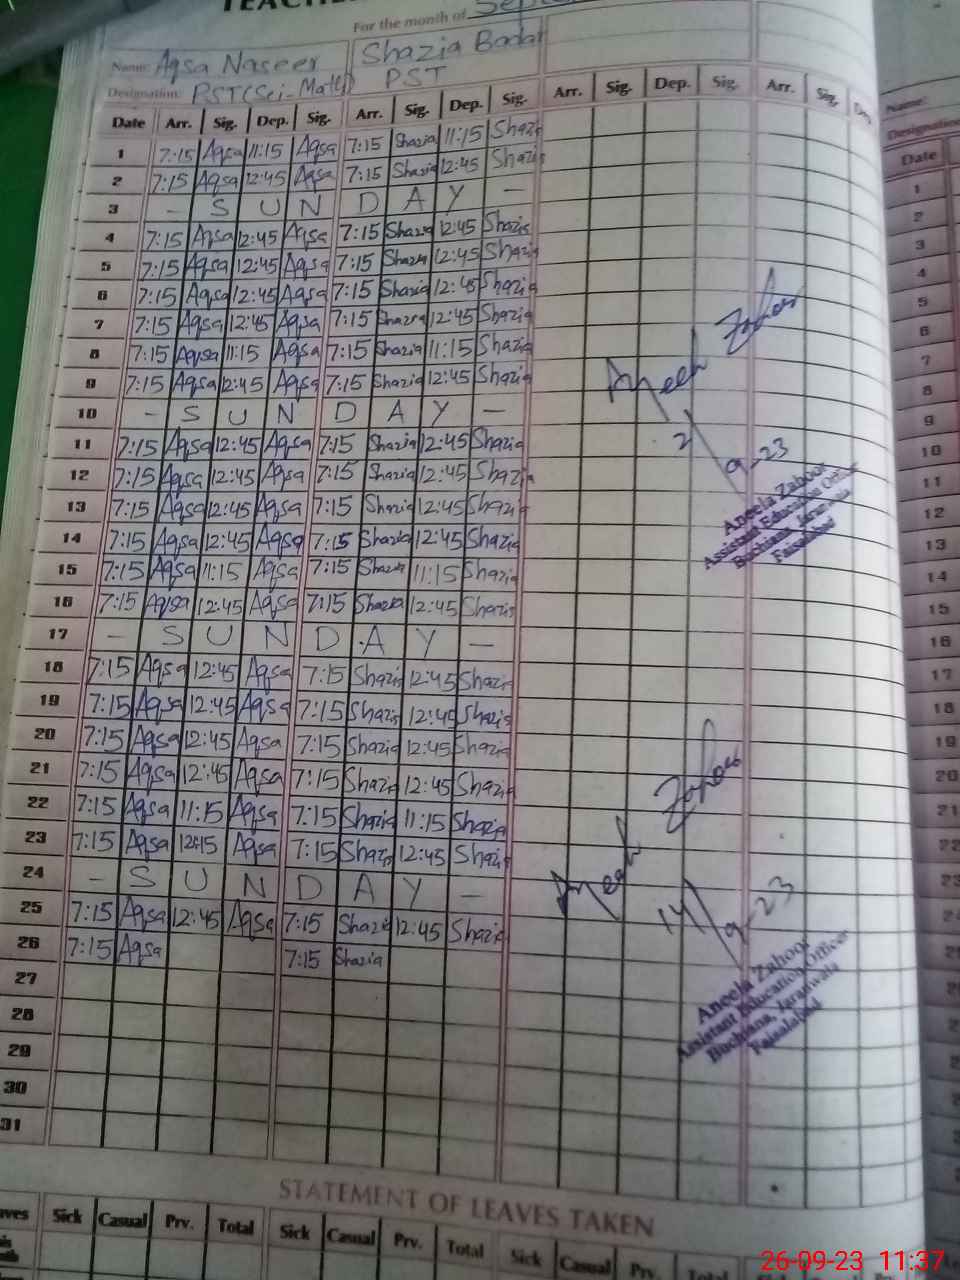 For the month of
Name: Aqsa Naseer Shazia Badar
Designation: PST(Sci-Math) PST
Date Arr. Sig. Dep. Sig. Arr. Sig. Dep. Sig. Arr. Sig. Dep. Sig. Arr. Sig. Dep.
1 7:15 Aqsa 11:15 Aqsa 7:15 Shazia 11:15 Shazia
2 7:15 Aqsa 12:45 Aqsa 7:15 Shazia 12:45 Shazia
3 - S U N D A Y -
4 7:15 Aqsa 12:45 Aqsa 7:15 Shazia 12:45 Shazia
5 7:15 Aqsa 12:45 Aqsa 7:15 Shazia 12:45 Shazia
6 7:15 Aqsa 12:45 Aqsa 7:15 Shazia 12:45 Shazia
7 7:15 Aqsa 12:45 Aqsa 7:15 Shazia 12:45 Shazia
8 7:15 Aqsa 11:15 Aqsa 7:15 Shazia 11:15 Shazia
9 7:15 Aqsa 12:45 Aqsa 7:15 Shazia 12:45 Shazia
10 - S U N D A Y -
11 7:15 Aqsa 12:45 Aqsa 7:15 Shazia 12:45 Shazia
12 7:15 Aqsa 12:45 Aqsa 7:15 Shazia 12:45 Shazia
13 7:15 Aqsa 12:45 Aqsa 7:15 Shazia 12:45 Shazia
14 7:15 Aqsa 12:45 Aqsa 7:15 Shazia 12:45 Shazia
15 7:15 Aqsa 11:15 Aqsa 7:15 Shazia 11:15 Shazia
16 7:15 Aqsa 12:45 Aqsa 7:15 Shazia 12:45 Shazia
17 - S U N D A Y -
18 7:15 Aqsa 12:45 Aqsa 7:15 Shazia 12:45 Shazia
19 7:15 Aqsa 12:45 Aqsa 7:15 Shazia 12:45 Shazia
20 7:15 Aqsa 12:45 Aqsa 7:15 Shazia 12:45 Shazia
21 7:15 Aqsa 12:45 Aqsa 7:15 Shazia 12:45 Shazia
22 7:15 Aqsa 11:15 Aqsa 7:15 Shazia 11:15 Shazia
23 7:15 Aqsa 12:15 Aqsa 7:15 Shazia 12:45 Shazia
24 - S U N D A Y -
25 7:15 Aqsa 12:45 Aqsa 7:15 Shazia 12:45 Shazia
26 7:15 Aqsa 7:15 Shazia
27
28
29
30
31
2/9-23
Aneela Zahoor
Assistant Education Officer
Buchiana, Jaranwala
Faisalabad
14/9-23
Aneela Zahoor
Assistant Education Officer
Buchiana, Jaranwala
Faisalabad
STATEMENT OF LEAVES TAKEN
Sick Casual Prv. Total Sick Casual Prv. Total Sick Casual Prv. Total
Name:
Designation
Date
1
2
3
4
5
6
7
8
9
10
11
12
13
14
15
16
17
18
19
20
21
22
23
26-09-23 11:37